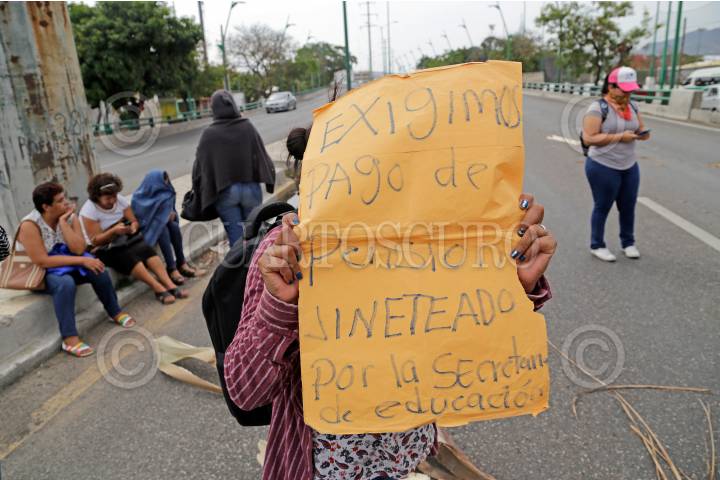 EXIGIMOS
PAGO de
PENSION
JINETEADO
por la Secretaría
de educación
CUARTOSCURO